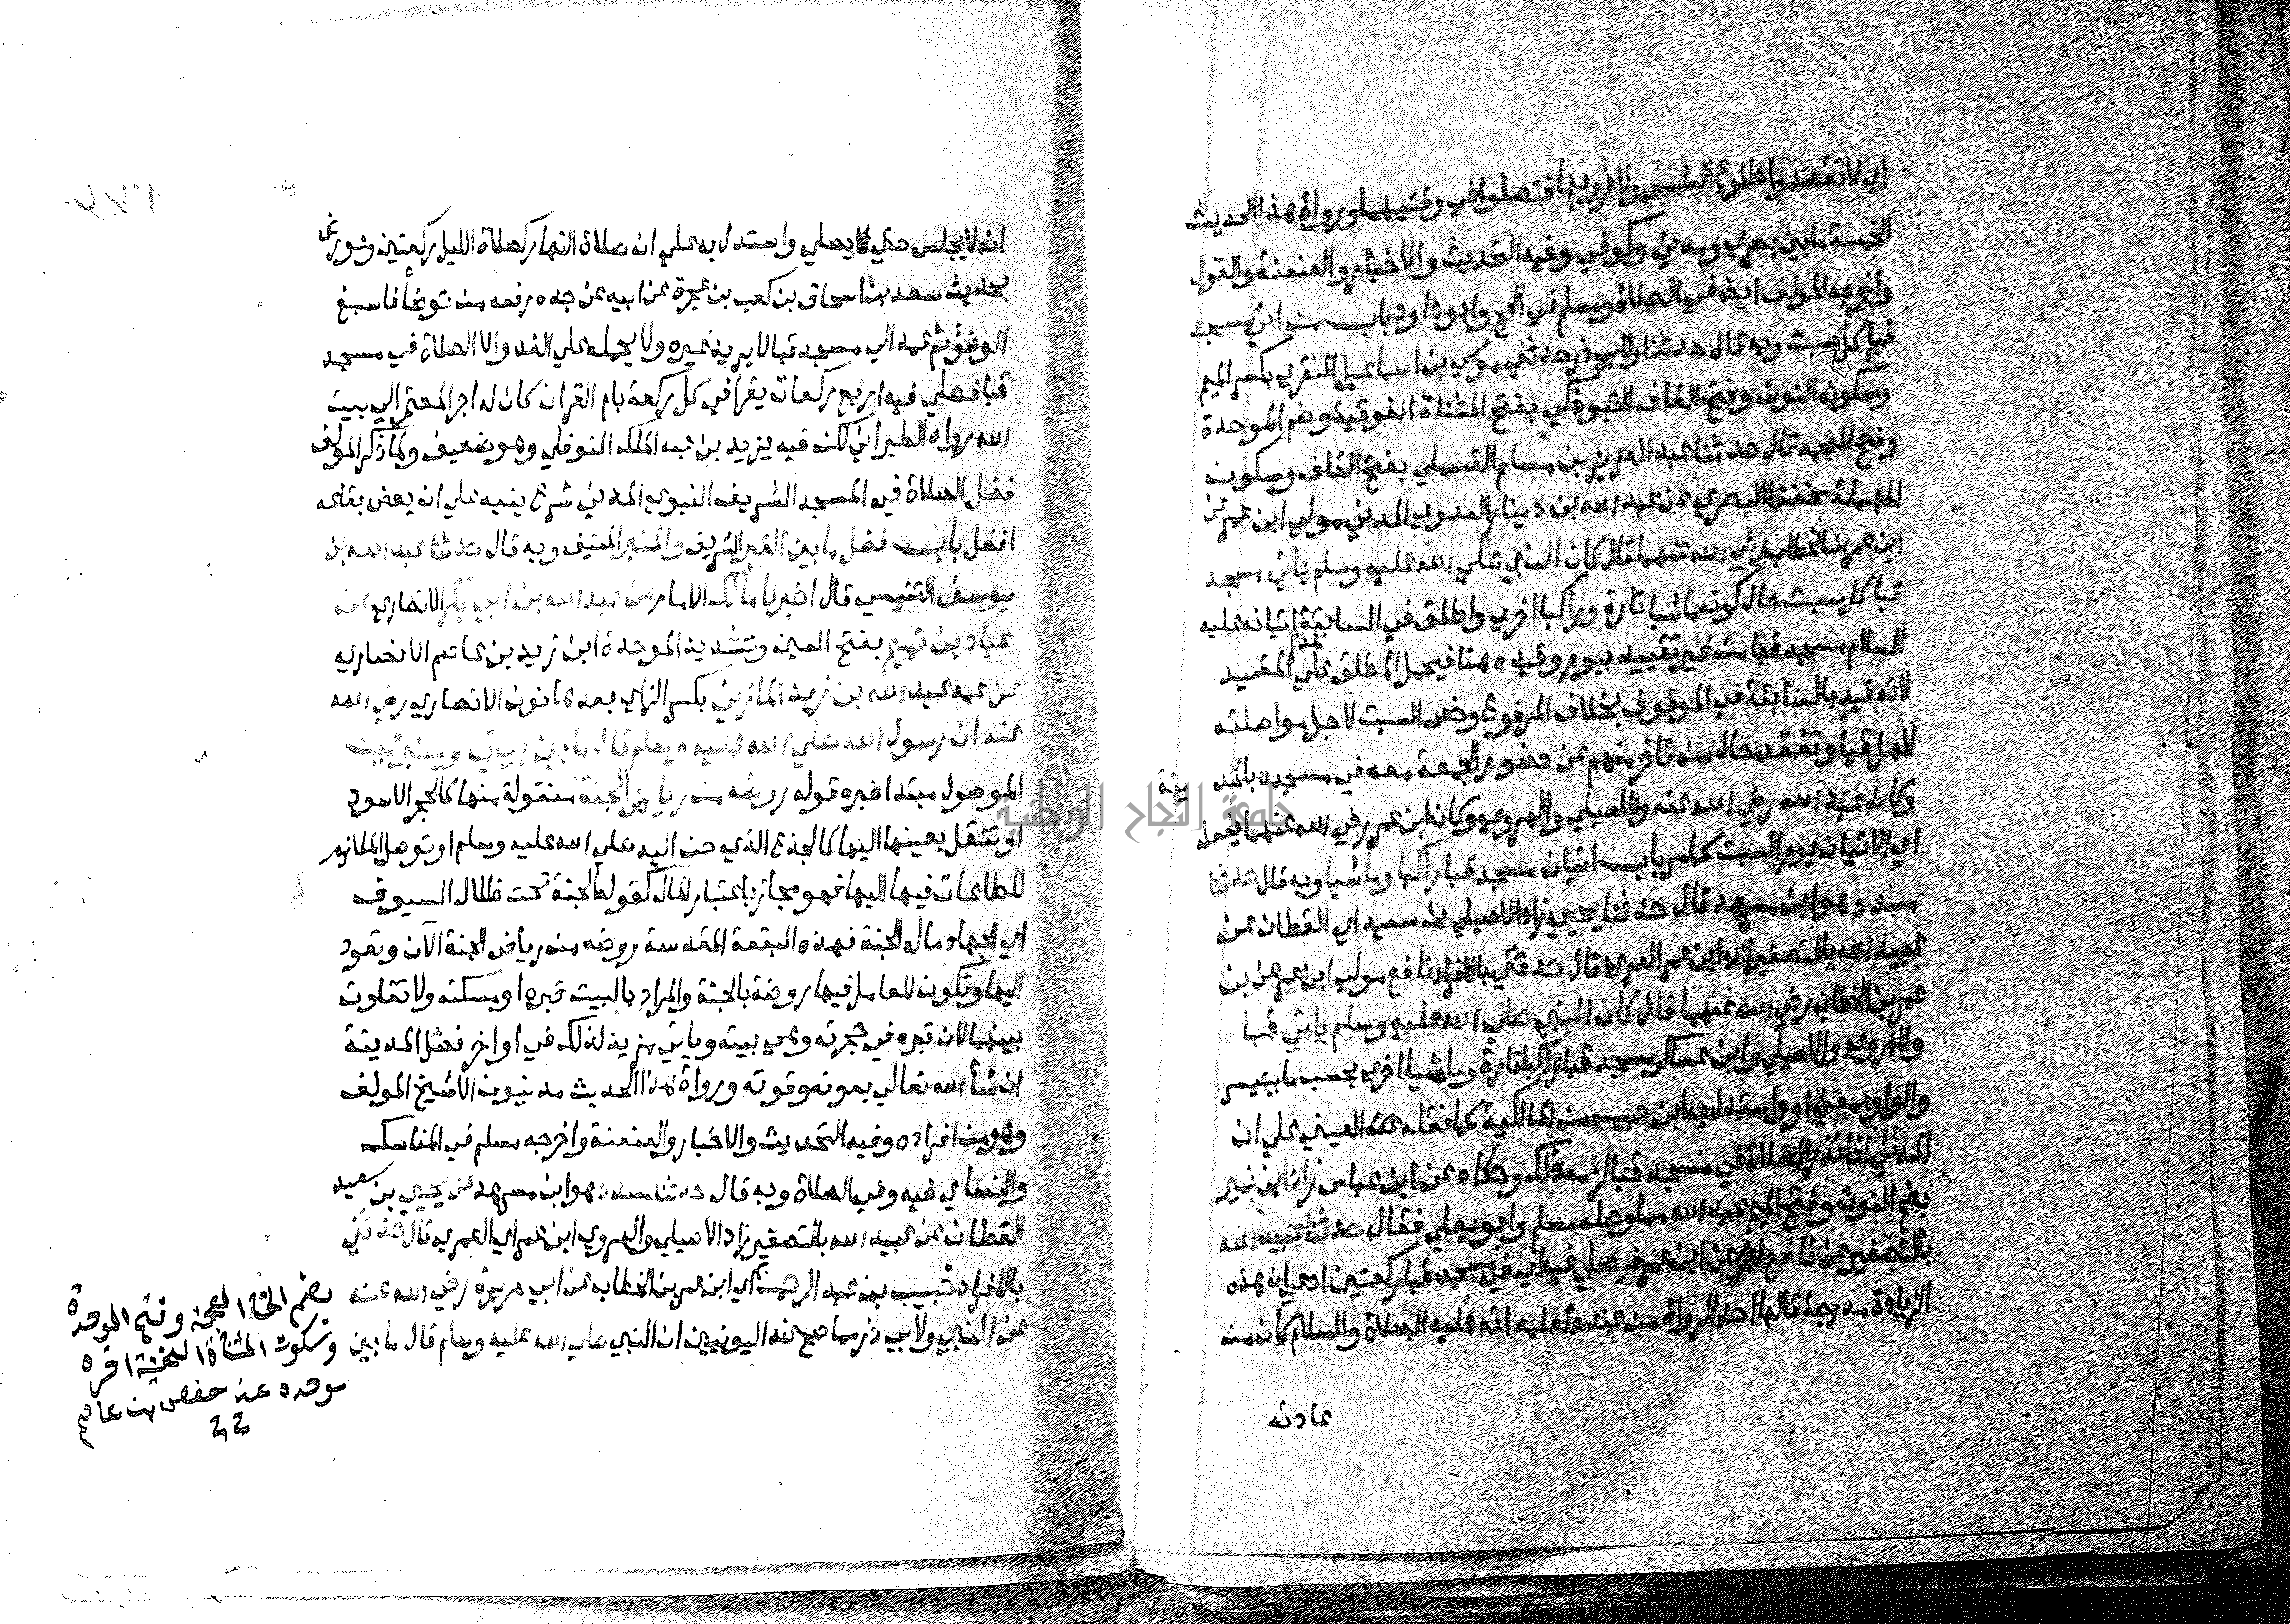 اي لا تقصدوا طلوع الشمس ولا غروبها فتصلوا في وقتيهما ورواة هذا الحديث
الخمسة ما بين بصري ومدني وكوفي وفيه التحديث والاخبار والعنعنة والقول
واخرجه المولف ايضا في الصلاة ومسلم في الحج وابو داود باب من اتي مسجد
قبا كل سبت وبه قال حدثنا ولابي ذر حدثني موسي بن اسماعيل المنقري بكسر الميم
وسكون النون وفتح القاف التبوذكي بفتح المثناة الفوقية وضم الموحدة
وفتح المعجمة قال حدثنا عبد العزيز بن مسلم القسملي بفتح القاف وسكون
المهملة مخففا البصري عن عبد الله بن دينار العدوي المدني مولي ابن عمر عن
ابن عمر بن الخطاب رضي الله عنهما قال كان النبي صلي الله عليه وسلم ياتي مسجد
قبا كل سبت حال كونه ماشيا تارة وراكبا اخري واطلق في السابقة اتيانه عليه
السلام مسجد قبا من غير تقييد بيوم وقيده هنا فيحمل المطلق علي المقيد
لانه قيد بالسابقة في الموقوف بخلاف المرفوع وخص السبت لاجل مواصلته
لاهل قبا وتفقد حال من تاخر منهم عن حضور الجمعة معه في مسجده بالمدينة
وكان عبد الله رضي الله عنه وللاصيلي والهروي وكان ابن عمر رضي الله عنهما يفعله
اي الاتيان يوم السبت كما مر باب اتيان مسجد قبا راكبا وماشيا وبه قال حدثنا
مسدد هو ابن مسرهد قال حدثنا يحيي زاد الاصيلي بن سعيد اي القطان عن
عبيد الله بالتصغير اي ابن عمر العمري قال حدثني بالافراد نافع مولي ابن عمر عن بن
عمر بن الخطاب رضي الله عنهما قال كان النبي صلي الله عليه وسلم ياتي قبا
وللهروي والاصيلي وابن عساكر مسجد قبا راكبا تارة وماشيا اخري بحسب ما يتيسر
والواو بمعني او واستدل به ابن حبيب من المالكية كما نقله العيني علي ان
المدني اذا نذر الصلاة في مسجد قبا لزمه ذلك وحكاه عن ابن عباس زاد ابن نمير
بضم النون وفتح الميم عبد الله مما وصله مسلم وابو يعلي فقال حدثنا عبيد الله
بالتصغير عن نافع عن ابن عمر فيصلي فيه اي في مسجد قبا ركعتين ادعي ان هذه
الزيادة مدرجة قالها احد الرواة من عنده لعلمه انه عليه الصلاة والسلام كان من
عادته
انه لا يجلس حتي يصلي واستدل به علي ان صلاة النهار كصلاة الليل ركعتين وعورض
بحديث سعد بن اسحاق بن كعب بن عجرة عن ابيه عن جده رفعه من توضا فاسبغ
الوضؤ ثم عمد الي مسجد قبا لا يريد غيره ولا يحمله علي الغدو الا الصلاة في مسجد
قبا فصلي فيه اربع ركعات يقرا في كل ركعة بام القران كان له اجر المعتمر الي بيت
الله رواه الطبراني لكن فيه يزيد بن عبد الملك النوفلي وهو ضعيف ولما ذكر المولف
فضل الصلاة في المسجد الشريف النبوي المدني شرع ينبه علي ان بعض بقاعه
افضل باب فضل ما بين القبر الشريف والمنبر المنيف وبه قال حدثنا عبد الله بن
يوسف التنيسي قال اخبرنا مالك الامام عن عبد الله بن ابي بكر الانصاري عن
عباد بن تميم بفتح العين وتشديد الموحدة ابن زيد بن عاصم الانصاري
عن عمه عبد الله بن زيد المازني بكسر الزاي بعدها نون الانصاري رضي الله
عنه ان رسول الله صلي الله عليه وسلم قال ما بين بيتي ومنبري
الموصول مبتدا خبره قوله روضة من رياض الجنة منقولة منها كالحجر الاسود
او تنقل بعينها اليها كالجذع الذي حن اليه صلي الله عليه وسلم او توصل الملازم
للطاعات فيها اليها فهو مجاز باعتبار المال كقوله الجنة تحت ظلال السيوف
اي الجهاد ماله الجنة فهذه البقعة المقدسة روضة من رياض الجنة الآن وتعود
اليها وتكون للعامل فيها روضة بالجنة والمراد بالبيت قبره او مسكنه ولا تفاوت
بينهما لان قبره في حجرته وهي بيته وياتي مزيد لذلك في اواخر فضل المدينة
ان شا الله تعالي بعونه وقوته ورواة هذا الحديث مدنيون الا شيخ المولف
وهو من افراده وفيه التحديث والاخبار والعنعنة واخرجه مسلم في المناسك
والنساي فيه وفي الصلاة وبه قال حدثنا مسدد هو ابن مسرهد عن يحيي بن سعيد
القطان عن عبيد الله بالتصغير زاد الاصيلي والهروي ابن عمر اي العمري قال حدثني
بالافراد خبيب بن عبد الرحمن اي ابن عمر بن الخطاب عن ابي هريرة رضي الله عنه
عن النبي ولابي ذر مما صح عند اليونيين ان النبي صلي الله عليه وسلم قال ما بين
بضم الخا المعجمة وفتح الموحدة
وسكون المثناة التحتية اخره
موحدة عن حفص بن عاصم
جامعة النجاح الوطنية